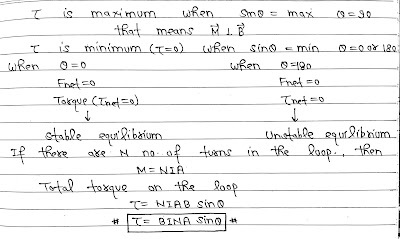 τ is maximum when sinθ = max θ=90
that means M⃗ ⊥ B⃗
τ is minimum (τ=0) when sinθ = min θ=0 or 180
when θ=0 when θ=180
Fnet=0 Fnet=0
Torque (τnet)=0 τnet=0
↓ ↓
stable equilibrium Unstable equilibrium
If there are N no. of turns in the loop., then
M=NIA
Total torque on the loop
τ= NIAB sinθ
# τ= BINA sinθ #